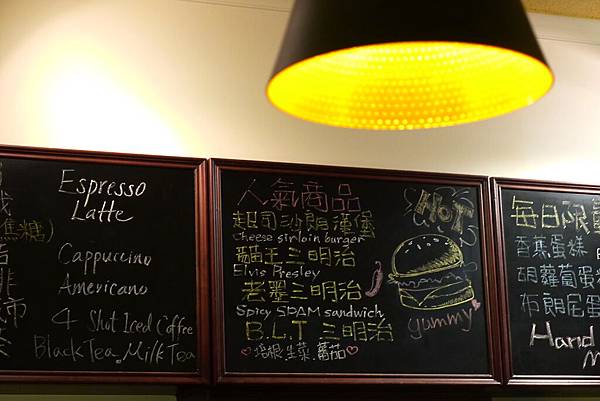 焦糖)
Espresso
Latte
Cappuccino
Americano
4 Shot Iced Coffee
Black Tea. Milk Tea
人氣商品
起司沙朗漢堡
Cheese sirloin burger
貓王三明治
Elvis Presley
老墨三明治
Spicy SPAM sandwich
B.L.T 三明治
♡培根.生菜.蕃茄♡
HOT
yummy
每日限
香蕉蛋糕
胡蘿蔔蛋糕
布朗尼蛋
Hand
M